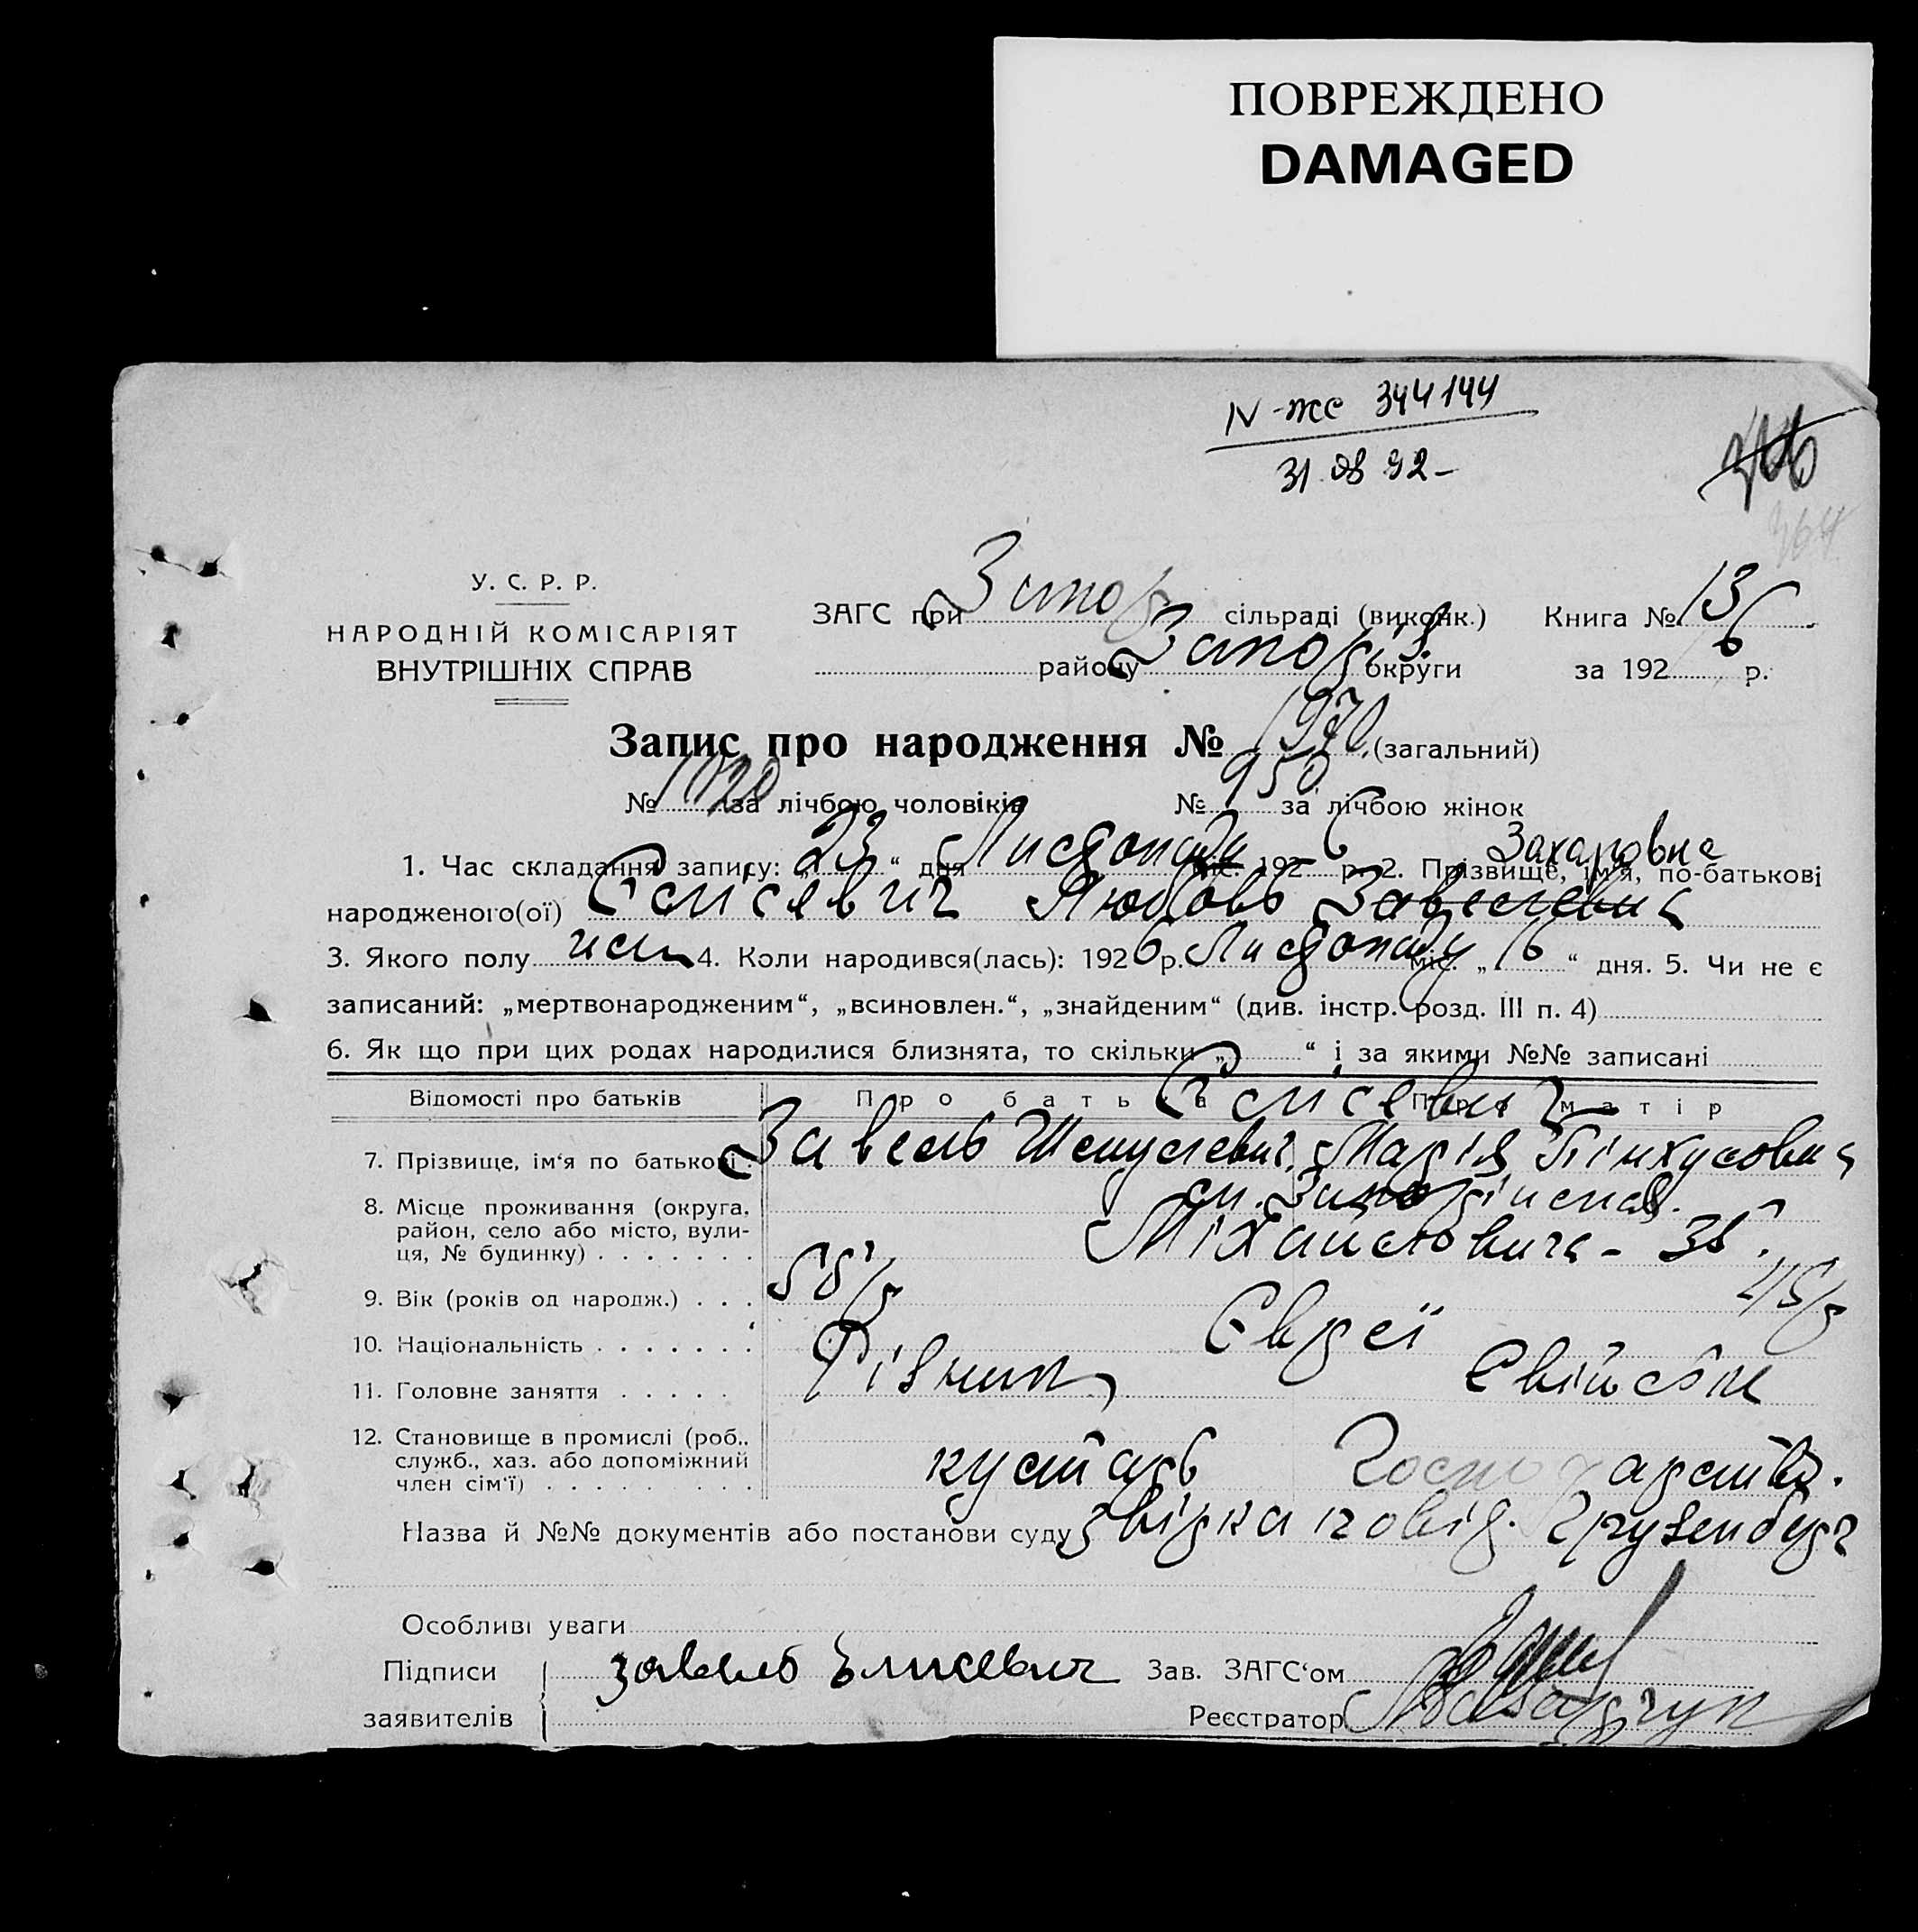 ПОВРЕЖДЕНО
DAMAGED
IV-жс 344144
31.08 92-
364
У. С. Р. Р.
НАРОДНІЙ КОМІСАРІЯТ
ВНУТРІШНІХ СПРАВ
ЗАГС при Запор сільраді (виконк.) Книга № 13
району Запоріз. округи за 192 6 р.
Запис про народження № 1970 (загальний)
№ 1020 за лічбою чоловіків № 950 за лічбою жінок
Захаровна
1. Час складання запису: „ 23 “ дня Листопаду міс. 192 6 р. 2. Прізвище, ім'я, по-батькові
народженого(ої) Єлісевич Любовь Завелевна
3. Якого полу жін 4. Коли народився(лась): 192 6 р. Листопаду міс. „ 16 “ дня. 5. Чи не є
записаний: „мертвонародженим“, „всиновлен.“, „знайденим“ (див. інстр. розд. III п. 4)
6. Як що при цих родах народилися близнята, то скільки „ “ і за якими №№ записані
Відомості про батьків Про батька Про матір
Єлісевич
7. Прізвище, ім'я по батькові . Завель Шмулевич. Марія Пінхусовна
8. Місце проживання (округа, район, село або місто, вули- ця, № будинку) . . . . . . . м.
Міхайловича - 35.
9. Вік (років од народж.) . . . 45/р
10. Національність . . . . . . . Євреї
11. Головне заняття . . . . . Різник Свійськ
12. Становище в промислі (роб., служб., хаз. або допоміжний член сім'ї) . . . . . . . . кустарь Господарство.
Назва й №№ документів або постанови суду
Особливі уваги
Підписи завель Элисевич Зав. ЗАГС'ом
заявителів Реєстратор